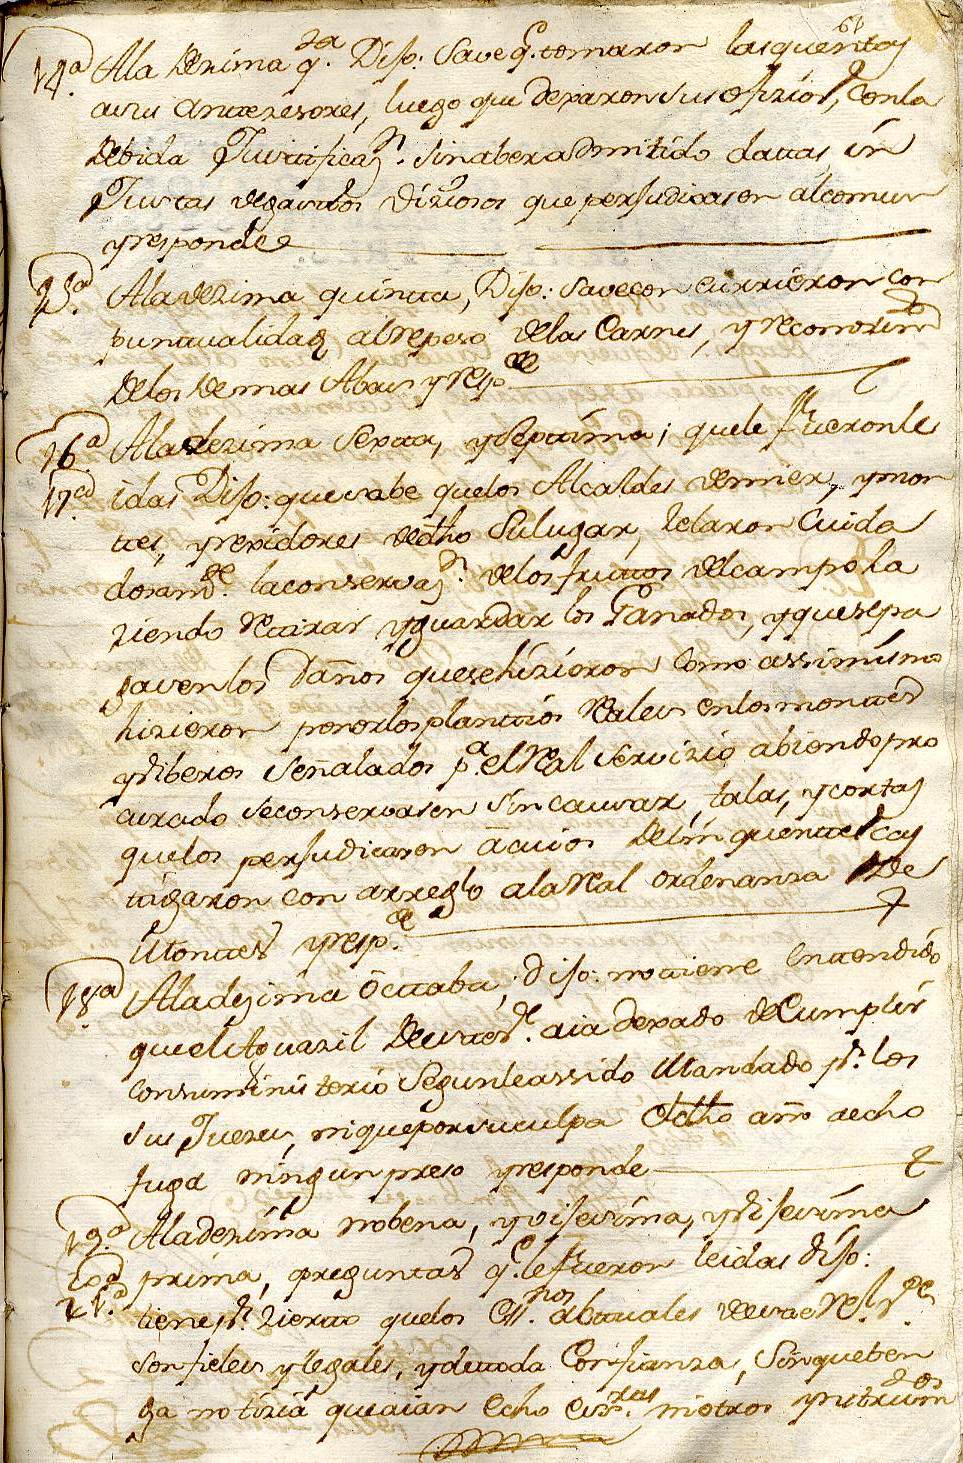 61
14ª Ala Dezima qª. Dijo: Save q. tomaron las quentas
asus Antezesores, luego que dexaron sus ofizios, Conla
Debida Justificazⁿ. sin aber admitido dattas in
Justas de gastos Viziosos que perjudicasen alcomun
y responde
15ª Ala dezima quinta, Dijo: save con currieron con
puntualidad al repeso delas Carnes, y reconozimto
Delos Demas Abas y respde
16ª Ala dezima sexta, y Septtima; que le fueron le
17ª idas Dijo: que sabe quelos Alcaldes de mier, y mon
ttes, y rexidores de dho Su lugar, Zelaron Cuida
dosamte. la conservazn. delos fruttos del campo ha
ziendo rettirar y guardar los Ganados, y que se pa
gasen los Daños que se hizieron Como assimismo
hizieron poner los planttios Reales en los monttes
y riberos Señalados pª. el Real Servizio abiendo pro
curado se conservasen sin causar, talas, y corttas
quelos perjudicasen a cuios Delinquenttes Cas
tigaron con arreglo ala Real ordenanza De
Monttes y respde.
18ª Ala dezima Octtaba, dijo: no tiene Entendido
que el Aguazil De este Vª. aia dexado de Cumplir
con su ministerio Segun le a ssido Mandado pr. los
sus Juezes, ni que por su culpa Edho año a echo
fuga ningun preso y responde
19ª Ala dezima nobena, y vijessima, y vijessima
20ª prima, preguntas q. le fueron leidas dijo:
21ª tiene pr. zierto quelos Essnos. abttuales
son fieles y legales, y de ttoda Confianza, Sin que ten
ga notizia que aian Echo Essras. ni otros ynstrumtos